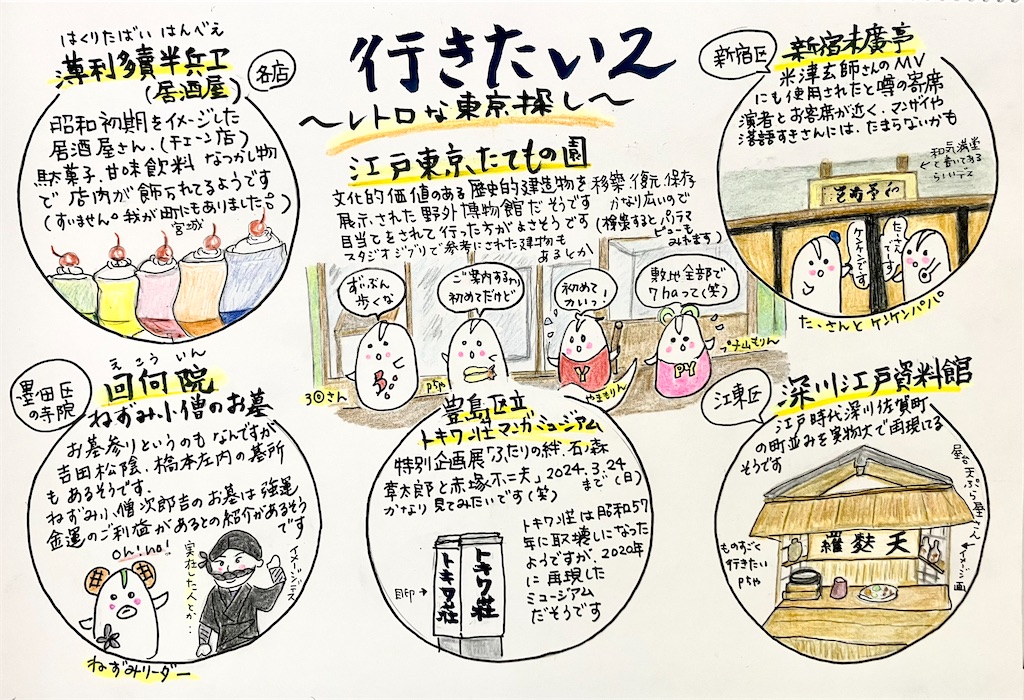 行きたい2
〜レトロな東京探し〜
はくりたばい はんべえ
薄利多賣半兵ヱ
(居酒屋)
各店
昭和初期をイメージした
居酒屋さん、(チェーン店)
駄菓子、甘味飲料 なつかし物
で 店内が 飾られてるようです
(すいません。我が町にもありました。
宮城
江戸東京、たてもの園
文化的価値のある歴史的建造物を移築、復元、保存
展示された野外博物館だそうです かなり広いので
目当てをきめて行った方がよさそうです (検索すると パノラマ
ビューも
みれます)
スタジオジブリで参考にされた建物も
あるとか
ずいぶん
歩くな
ご案内するわ
初めてだけど
初めて
かいっ!
敷地全部で
7haって(笑)
3◎さん
Pちゃ
やまもりん
プチ山もりん
Y
PY
新宿区
新宿末廣亭
米津玄師さんのMV
にも使用されたと噂の寄席
演者とお客席が近く、マンザイや
落語すきさんには、たまらないかも
和気満堂
と書いてある
らしいデス
ケンケンです
たぁさん
でーす
たぁさんと ケンケンパパ
墨田区
の寺院
えこういん
回向院
ねずみ小僧のお墓
お墓参りというのもなんですが
吉田松陰、橋本左内の墓所
もあるそうです。
ねずみ小僧次郎吉のお墓は強運
金運のご利益があるとの紹介があるそう
です
oh!no!
実在した人とか…
イメージデス
ねずみリーダー
豊島区立
トキワ荘マンガミュージアム
特別企画展「ふたりの絆、石ノ森
章太郎と赤塚不二夫」2024.3.24
まで(日)
かなり見てみたいです(笑)
トキワ荘は昭和57
年に取壊しになった
ようですが、2020年
に再現した
ミュージアム
だそうです
目印→
トキワ荘
トキワ荘
江東区
深川江戸資料館
江戸時代深川佐賀町
の町並みを実物大で再現してる
そうです
屋台天ぷら屋さん
←イメージ画
天麩羅
ものすごく
行きたい
Pちゃ